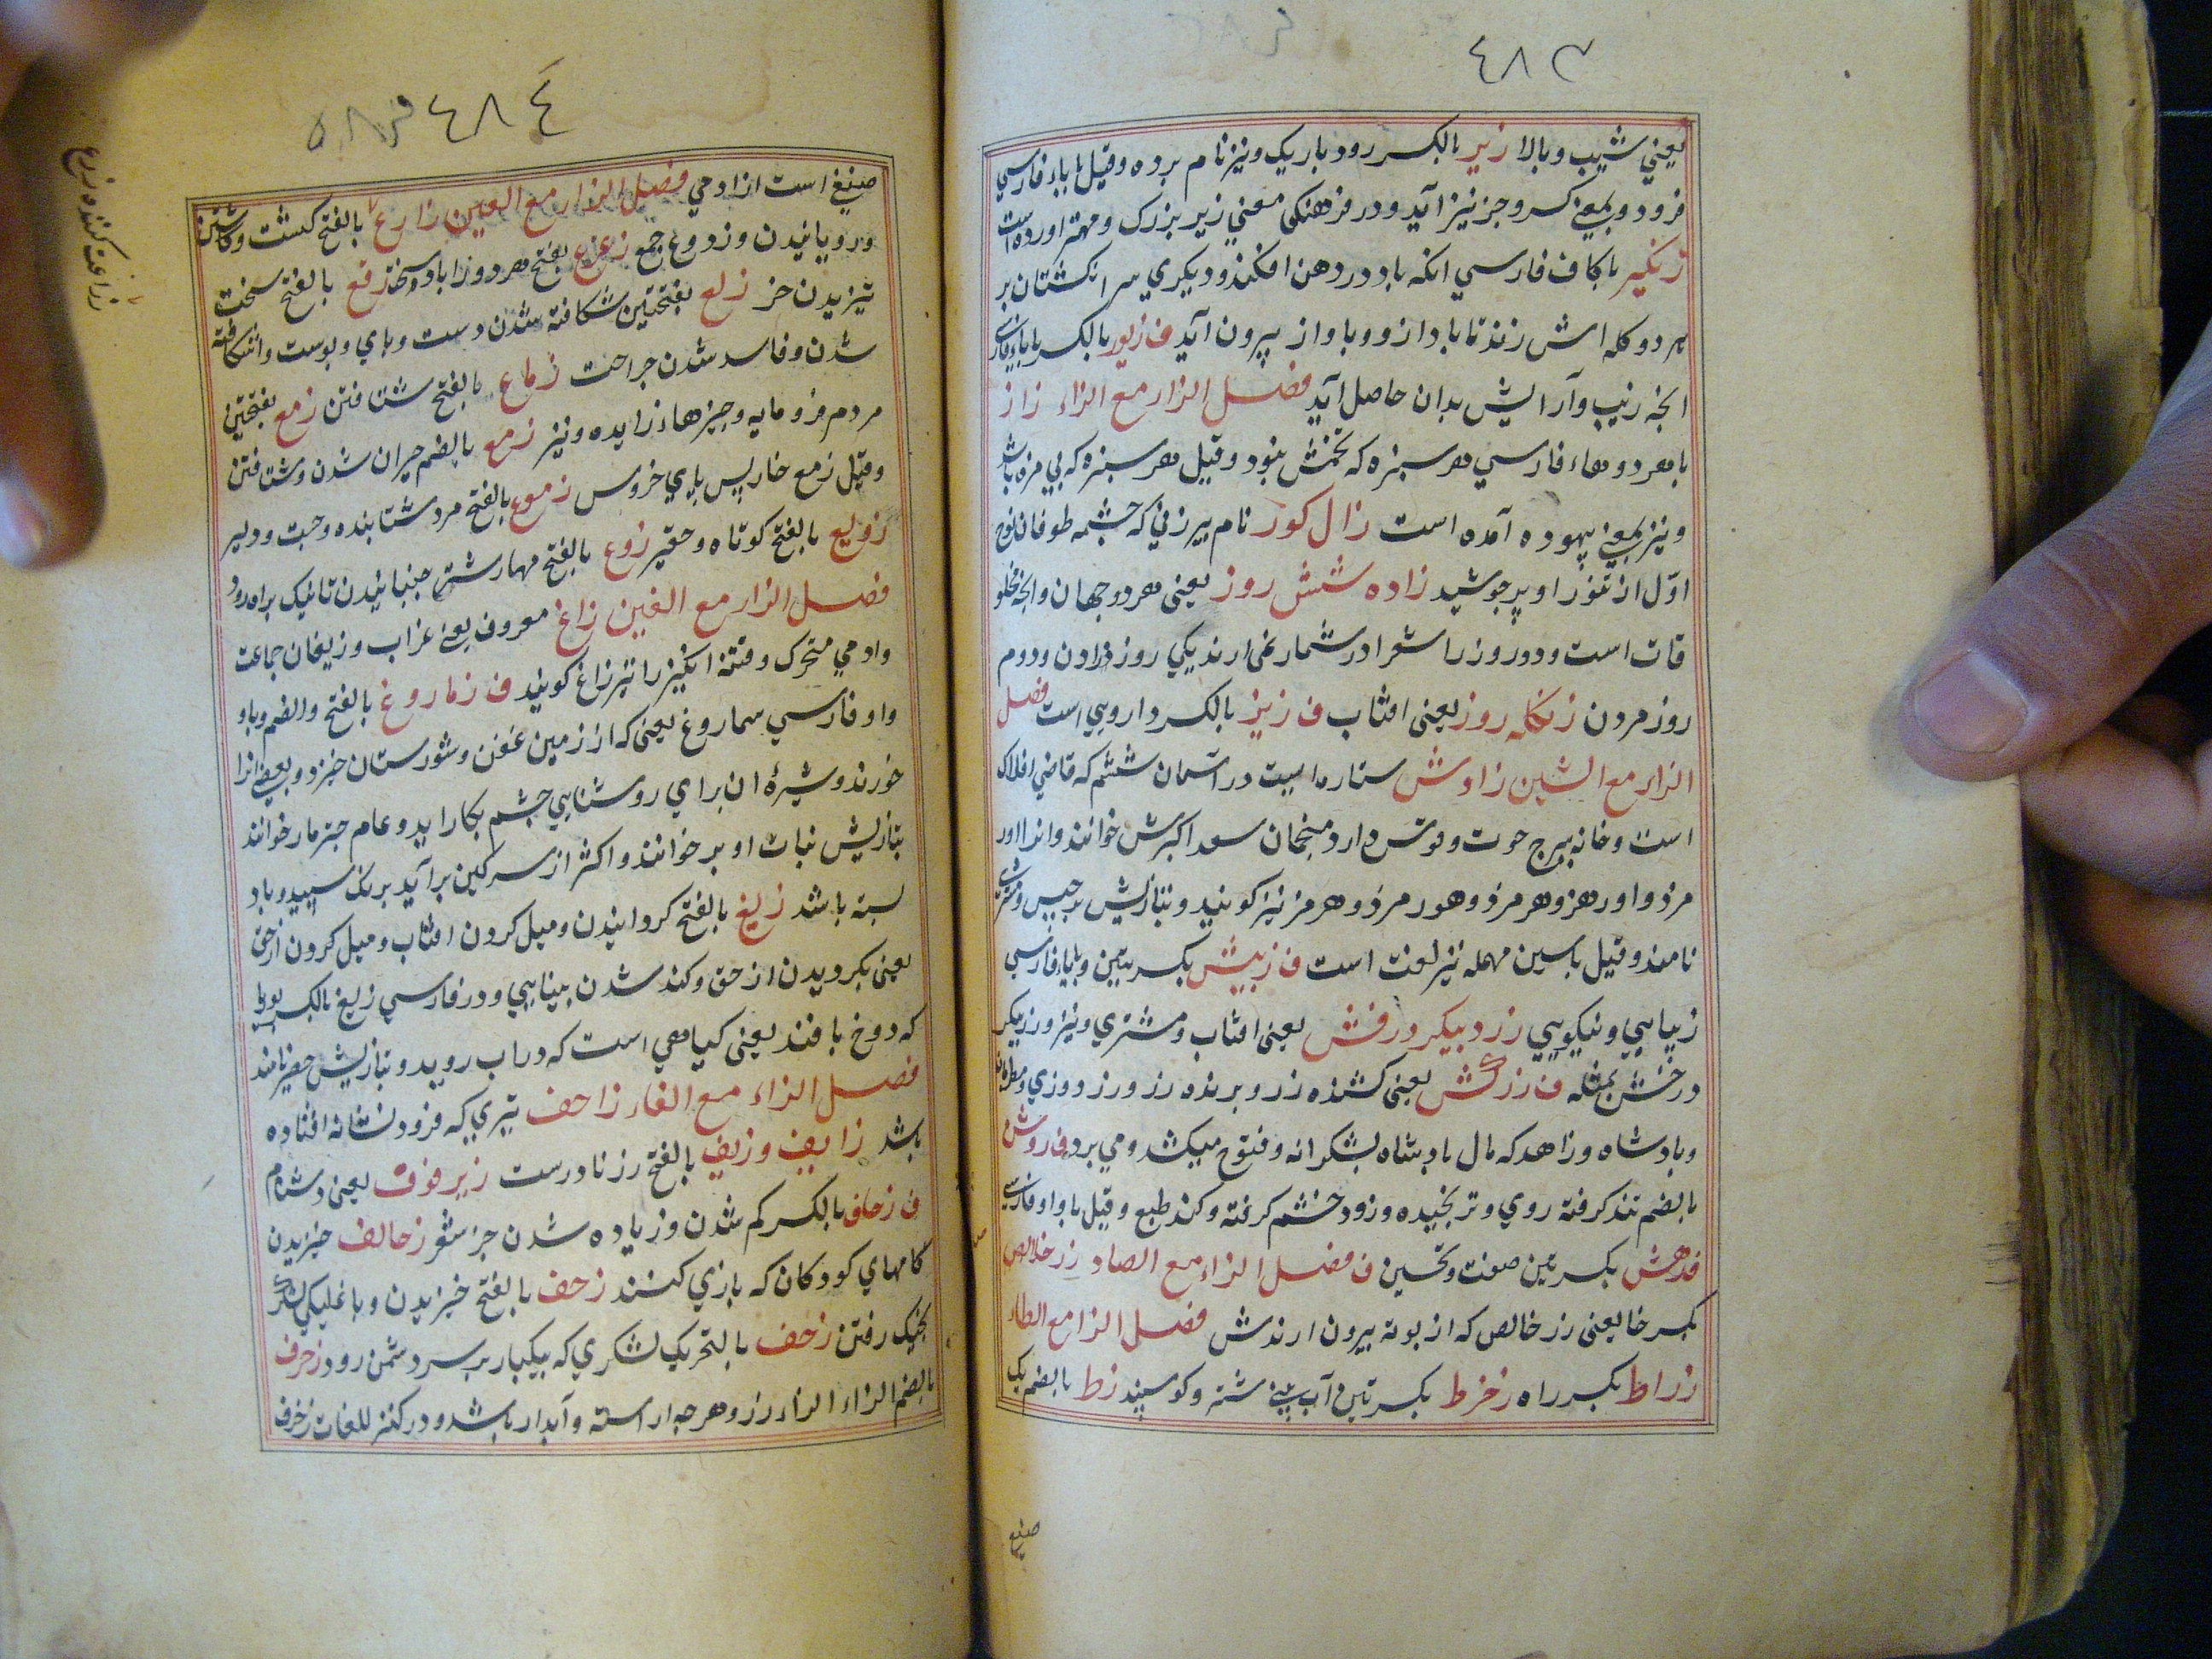 ٤٨٣
يعني شيب وبالا زير بالكسر رود باريك ونيز نام برده وقيل باباء فارسي
فرود وبمعني كسر وجز نيز آيد ودر فرهنكي معني زير بزرك ومهتر اورده است
زنكير باكاف فارسي انكه باد در دهن افكند وديكري سر انكشتان بر
هر دو كله اش زند تا باد از وو با واز بيرون آيد ف زيور بالكسر باباء فارسي
انجه زيب وآرايش بدان حاصل آيد فصل الزار مع الزاء زاز
با هر دو هاء فارسي هر سبزه كه تخمش نبود وقيل هر سبزه كه بي مزه باشد
ونيز بمعني بيهوده آمده است زال كور نام پيرزني كه چشمه طوفان نوح
اول از تنور او بر جوشيد زاده شش روز يعني هر دو جهان وانجه مخلو
قات است ودو روز را شعرا در شمار نمي ارند يكي روز زادن ودوم
روز مردن زنكله روز يعني افتاب ف زيز بالكسر دارويي است فصل
الزار مع الشين زاوش ستاره ايست در آسمان ششم كه قاضي افلاك
است وخانه ببرج حوت وقوس دارد منجمان سعد اكبرش خوانند وانرا اور
مزد واورهز وهرمز وهورمزد وهرمز نيز كويند وبتازيش برجيس ومشتري
نامند وقيل باسين مهمله نيز لغت است ف زيبش بكسرتين وباباء فارسي
زيبايي ونيكويي زرد پيكر درفش يعني افتاب ومشتري ونيز وزرپيكر
درخش بمثله ف زركش يعني كشنده زر وبرنده زر ورز دوزي
وبادشاه وزاهد كه مال بادشاه بشكرانه وفتوح ميكشد ومي برد ف زوش
بالضم تند كرفته روي وترنجيده وزود خشم كرفته وكند طبع وقيل باواو فارسي
زهش بكسرتين صفت وتحسين ف فصل الزاء مع الصاد زر خلاص
بكسر خا يعني زر خالص كه از بوته بيرون ارندش فصل الزا مع الطا
زراط بكسر راه زخرط بكسرتين آب بيني شتر وكوسپند زط بالضم يك
صنيع
٤٨٤
صنيع است از ادمي فصل الزار مع العين زارع بالفتح كشت وكاشتن
ورويانيدن وزروع جمع زعزع بفتح هر دو زا باد سخت زقع بالفتح سخت
تيزيدن خر زلع بفتحتين شكافته شدن دست وپاي وپوست واشكافته
شدن وفاسد شدن جراحت زماع بالفتح شتافتن زمع بفتحتين
مردم فرومايه وچيزهاء زايده ونيز زمع بالضم حيران شدن وشتافتن
وقيل زمع خار پس پاي خروس زموع بالفتح مرد شتابنده وچست ودلير
زوليع بالفتح كوتاه وحقير زوع بالفتح مهار شتر جنبانيدن تا نيك براه رود
فصل الزار مع الغين زاغ معروف يعني غراب وزيغان جماعت
وادمي متحرك وفتنه انكيز را نيز زاغ كويند ف زماروغ بالفتح والضم وباو
واو فارسي سماروغ يعني كه از زمين عفن وشورستان خيزد وبعضي انرا
خورند وشيرۀ ان براي روشنايي چشم بكار ايد وعام چتر مار خوانند
بتازيش نبات اوبر خوانند واكثر از سركين برآيد برنك سپيد وباد
بسته باشد زيغ بالفتح كردانيدن وميل كردن افتاب وميل كردن از حق
يعني بكرويدن از حق وكند شدن بينايي ودر فارسي زيغ بالكسر بوريا
كه دوخ بافند يعني كياهي است كه در اب رويد وبتازيش حصير نامند
فصل الزاء مع الفار زاحف تيري كه فرود نشانه افتاده
باشد زايف وزيف بالفتح زر نادرست زير فوق يعني دشنام
ف زحاف بالكسر كم شدن وزياده شدن جز شعر زحالف خيزيدن
كامهاي كودكان كه بازي كنند زحف بالفتح خيزيدن
بجنك رفتن زحف بالتحريك لشكري كه بيكبار بر سر دشمن رود زخرف
بالضم الزاء الراء زر وهر چه اراسته وآبدار باشد ودر كنز للغات زخرف
زراعت كننده زرع